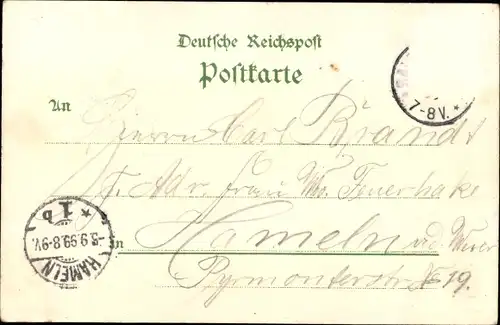 Deutsche Reichspost
Postkarte
7-8V. *
An
Herrn Carl Brandt
p. Adr. Frau Ww. Feuerhake
in Hameln a. d. Weser
Pyrmonterstr 19.
* 1b *
3.9.99.8-9V.
HAMELN